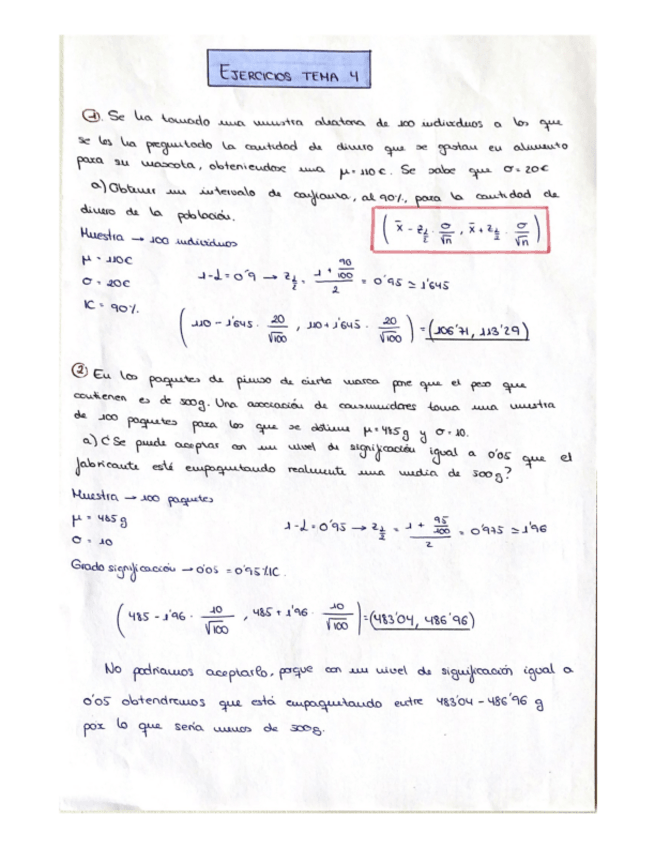 EJERCICIOS TEMA 4
① Se ha tomado una muestra aleatoria de 100 individuos a los que
se les ha preguntado la cantidad de dinero que se gastan en alimento
para su mascota, obteniendose una μ=110€. Se sabe que σ=20€
a) Obtener un intervalo de confianza, al 90%, para la cantidad de
dinero de la población.
(x̄ - z_{α/2} · σ/√n, x̄ + z_{α/2} · σ/√n)
Muestra → 100 individuos
μ = 110€
1-α = 0'9 → z_{α/2} = (1 + 90/100)/2 = 0'95 ≃ 1'645
σ = 20€
IC = 90%
(110 - 1'645 · 20/√100, 110 + 1'645 · 20/√100) = (106'71, 113'29)
② En los paquetes de pienso de cierta marca pone que el peso que
contienen es de 500g. Una asociación de consumidores toma una muestra
de 100 paquetes para los que se obtiene μ=485g y σ=10.
a) ¿Se puede aceptar con un nivel de significación igual a 0'05 que el
fabricante esté empaquetando realmente una media de 500g?
Muestra → 100 paquetes
μ = 485g
1-α = 0'95 → z_{α/2} = (1 + 95/100)/2 = 0'975 ≃ 1'96
σ = 10
Grado significación → 0'05 = 0'95% IC.
(485 - 1'96 · 10/√100, 485 + 1'96 · 10/√100) = (483'04, 486'96)
No podríamos aceptarlo, porque con un nivel de significación igual a
0'05 obtendremos que está empaquetando entre 483'04 - 486'96 g
por lo que sería menos de 500g.